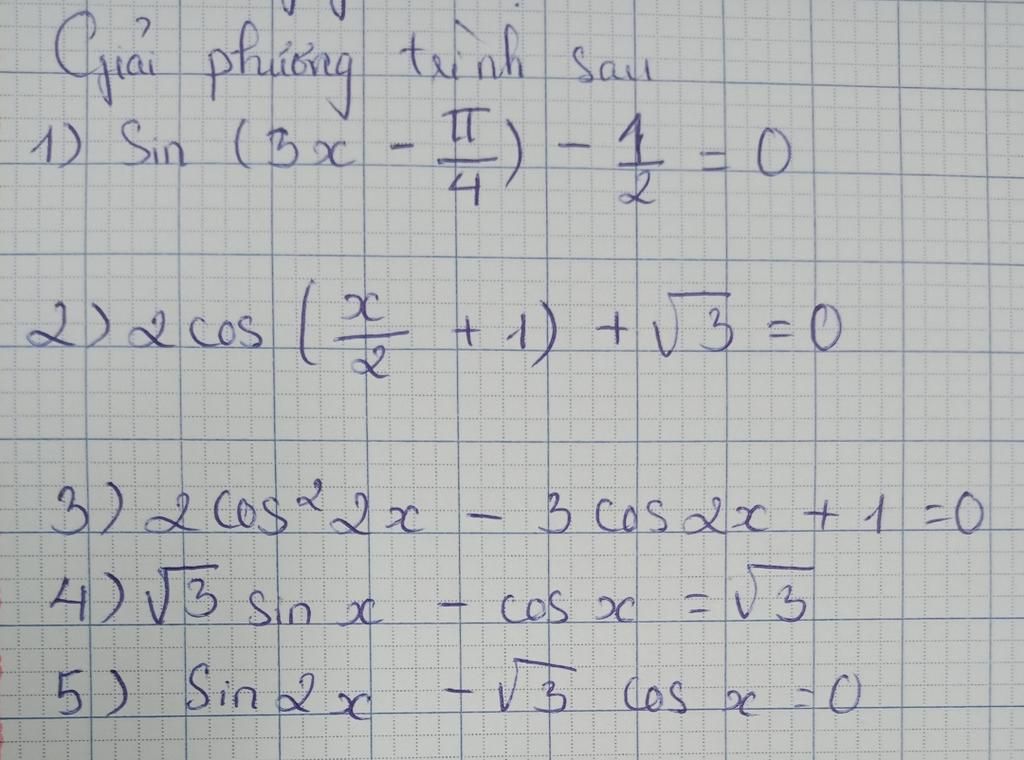 Giải phương trình sau
1) Sin (3x - π/4) - 1/2 = 0
2) 2 cos (x/2 + 1) + √3 = 0
3) 2 cos² 2x - 3 cos 2x + 1 = 0
4) √3 sin x - cos x = √3
5) Sin 2x - √3 cos x = 0